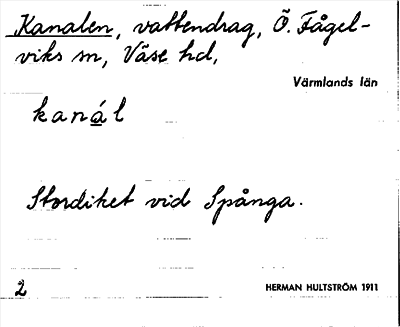 Kanalen, vattendrag, Ö. Fågel-
viks sn, Väse hd,
Värmlands län
kanál
Stordiket vid Spånga.
2
HERMAN HULTSTRÖM 1911